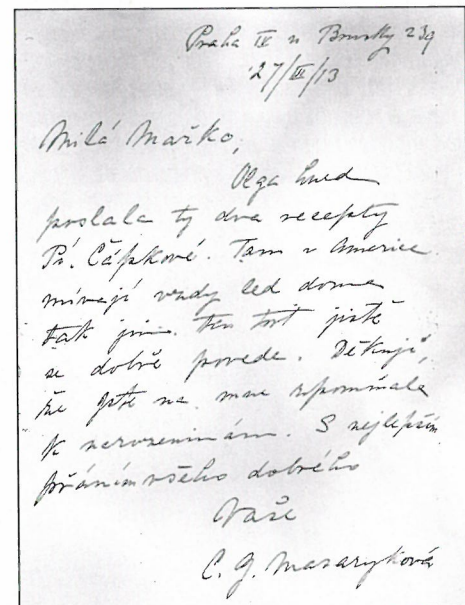 Praha IV u Brusky 239
27/III/13
Milá Mařko,
Olga hned
poslala ty dva recepty
Pí. Čápkové. Tam v Americe
mívají vždy led doma
tak jim ten tort jistě
se dobře povede. Děkuji,
že jste na mne vzpomněla
k narozeninám. S nejlepším
přáním všeho dobrého
Vaše
C. G. Masaryková